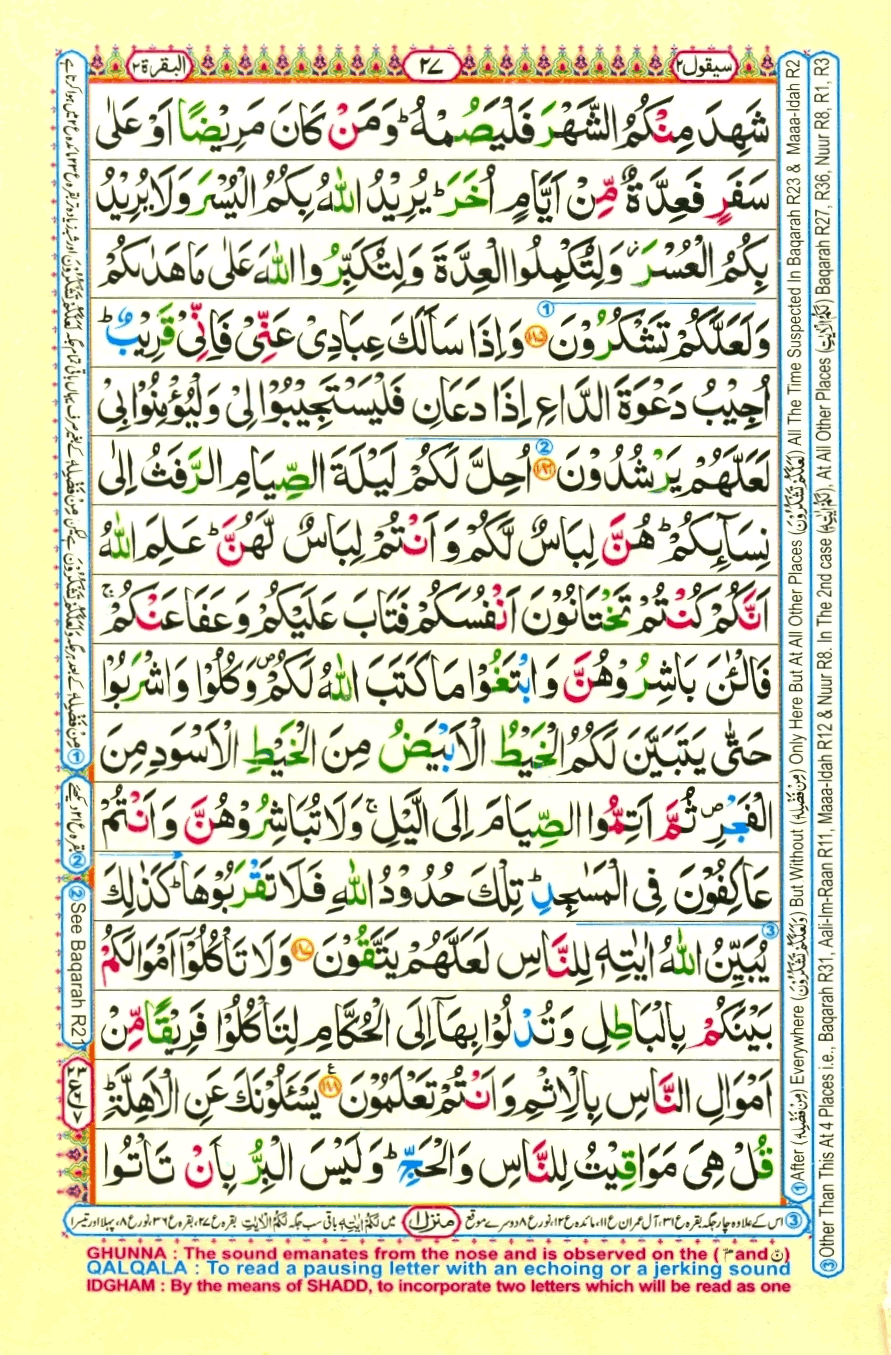 سيقول ٢
٢٧
البقرة ٢
شَهِدَ مِنْكُمُ الشَّهْرَ فَلْيَصُمْهُ ؕ وَمَنْ كَانَ مَرِيْضًا اَوْ عَلٰى
سَفَرٍ فَعِدَّةٌ مِّنْ اَيَّامٍ اُخَرَ ؕ يُرِيْدُ اللّٰهُ بِكُمُ الْيُسْرَ وَلَا يُرِيْدُ
بِكُمُ الْعُسْرَ ؗ وَلِتُكْمِلُوا الْعِدَّةَ وَلِتُكَبِّرُوا اللّٰهَ عَلٰى مَا هَدٰىكُمْ
وَلَعَلَّكُمْ تَشْكُرُوْنَ ﴿۱۸۵﴾ وَاِذَا سَاَلَكَ عِبَادِىْ عَنِّىْ فَاِنِّىْ قَرِيْبٌ ؕ
اُجِيْبُ دَعْوَةَ الدَّاعِ اِذَا دَعَانِ فَلْيَسْتَجِيْبُوْا لِىْ وَلْيُؤْمِنُوْا بِىْ
لَعَلَّهُمْ يَرْشُدُوْنَ ﴿۱۸۶﴾ اُحِلَّ لَكُمْ لَيْلَةَ الصِّيَامِ الرَّفَثُ اِلٰى
نِسَآئِكُمْ ؕ هُنَّ لِبَاسٌ لَّكُمْ وَ اَنْتُمْ لِبَاسٌ لَّهُنَّ ؕ عَلِمَ اللّٰهُ
اَنَّكُمْ كُنْتُمْ تَخْتَانُوْنَ اَنْفُسَكُمْ فَتَابَ عَلَيْكُمْ وَعَفَا عَنْكُمْ ۚ
فَالْـٰٔنَ بَاشِرُوْهُنَّ وَ ابْتَغُوْا مَا كَتَبَ اللّٰهُ لَكُمْ ۪ وَكُلُوْا وَاشْرَبُوْا
حَتّٰى يَتَبَيَّنَ لَكُمُ الْخَيْطُ الْاَبْيَضُ مِنَ الْخَيْطِ الْاَسْوَدِ مِنَ
الْفَجْرِ ۪ ثُمَّ اَتِمُّوا الصِّيَامَ اِلَى الَّيْلِ ۚ وَلَا تُبَاشِرُوْهُنَّ وَ اَنْتُمْ
عَاكِفُوْنَ فِى الْمَسٰجِدِ ؕ تِلْكَ حُدُوْدُ اللّٰهِ فَلَا تَقْرَبُوْهَا ؕ كَذٰلِكَ
يُبَيِّنُ اللّٰهُ اٰيٰتِهٖ لِلنَّاسِ لَعَلَّهُمْ يَتَّقُوْنَ ﴿۱۸۷﴾ وَلَا تَاْكُلُوْۤا اَمْوَالَكُمْ
بَيْنَكُمْ بِالْبَاطِلِ وَتُدْلُوْا بِهَاۤ اِلَى الْحُكَّامِ لِتَاْكُلُوْا فَرِيْقًا مِّنْ
اَمْوَالِ النَّاسِ بِالْاِثْمِ وَ اَنْتُمْ تَعْلَمُوْنَ ﴿۱۸۸﴾ يَسْـَٔلُوْنَكَ عَنِ الْاَهِلَّةِ ؕ
قُلْ هِىَ مَوَاقِيْتُ لِلنَّاسِ وَالْحَجِّ ؕ وَلَيْسَ الْبِرُّ بِاَنْ تَاْتُوا
① After (مِنْ فَضْلِهٖ) Everywhere (وَلَعَلَّكُمْ تَشْكُرُوْنَ) But Without (مِنْ فَضْلِهٖ) Only Here But At All Other Places (لَعَلَّكُمْ تَشْكُرُوْنَ) All The Time Suspected In Baqarah R23 & Maaa-Idah R2
③ Other Than This At 4 Places i.e., Baqarah R31, Aali-Im-Raan R11, Maaa-idah R12 & Nuur R8. In The 2nd case (لَكُمْ اٰيٰتِهٖ), At All Other Places (لَكُمُ الْاٰيٰتِ) Baqarah R27, R36, Nuur R8, R1, R3
② See Baqarah R21
③ اس کے علاوہ چار جگہ بقرہ ع۳۱، آل عمران ع۱۱، مائدہ ع۱۲، نور ع۸ دوسرے موقع
منزل ۱
میں لَكُمْ اٰيٰتِهٖ باقی سب جگہ لَكُمُ الْاٰيٰتِ بقرہ ع۲۷، بقرہ ع۳۶، نور ع۸، پہلا اور تیسرا
GHUNNA : The sound emanates from the nose and is observed on the ( مّ and نّ )
QALQALA : To read a pausing letter with an echoing or a jerking sound
IDGHAM : By the means of SHADD, to incorporate two letters which will be read as one